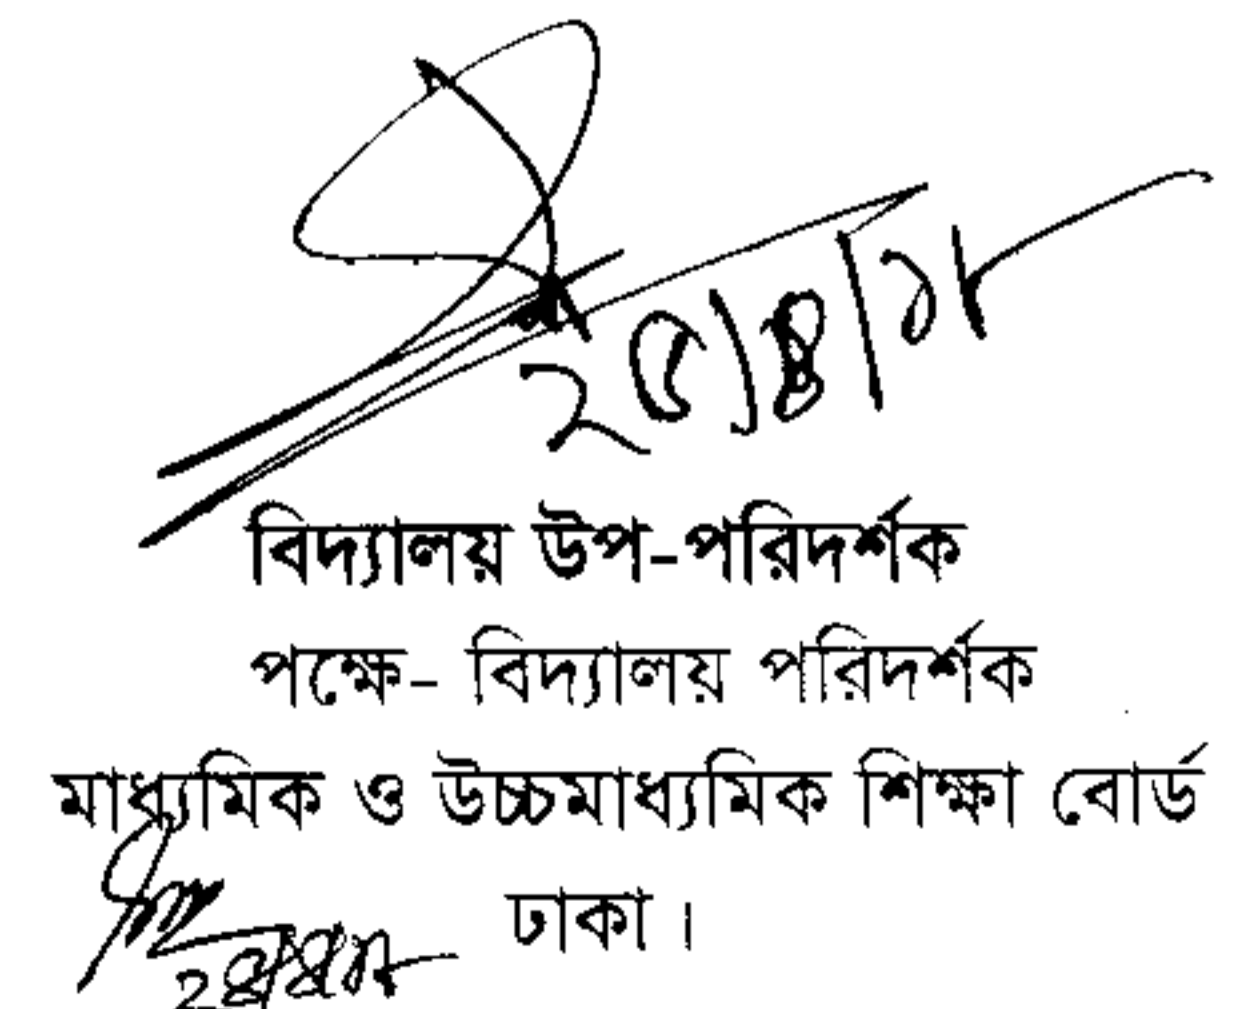 ২৫/৪/১৮
বিদ্যালয় উপ-পরিদর্শক
পক্ষে- বিদ্যালয় পরিদর্শক
মাধ্যমিক ও উচ্চমাধ্যমিক শিক্ষা বোর্ড
ঢাকা।